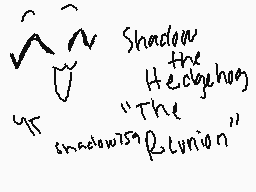 Shadow
the
Hedgehog
"The
Reunion"
shadow759